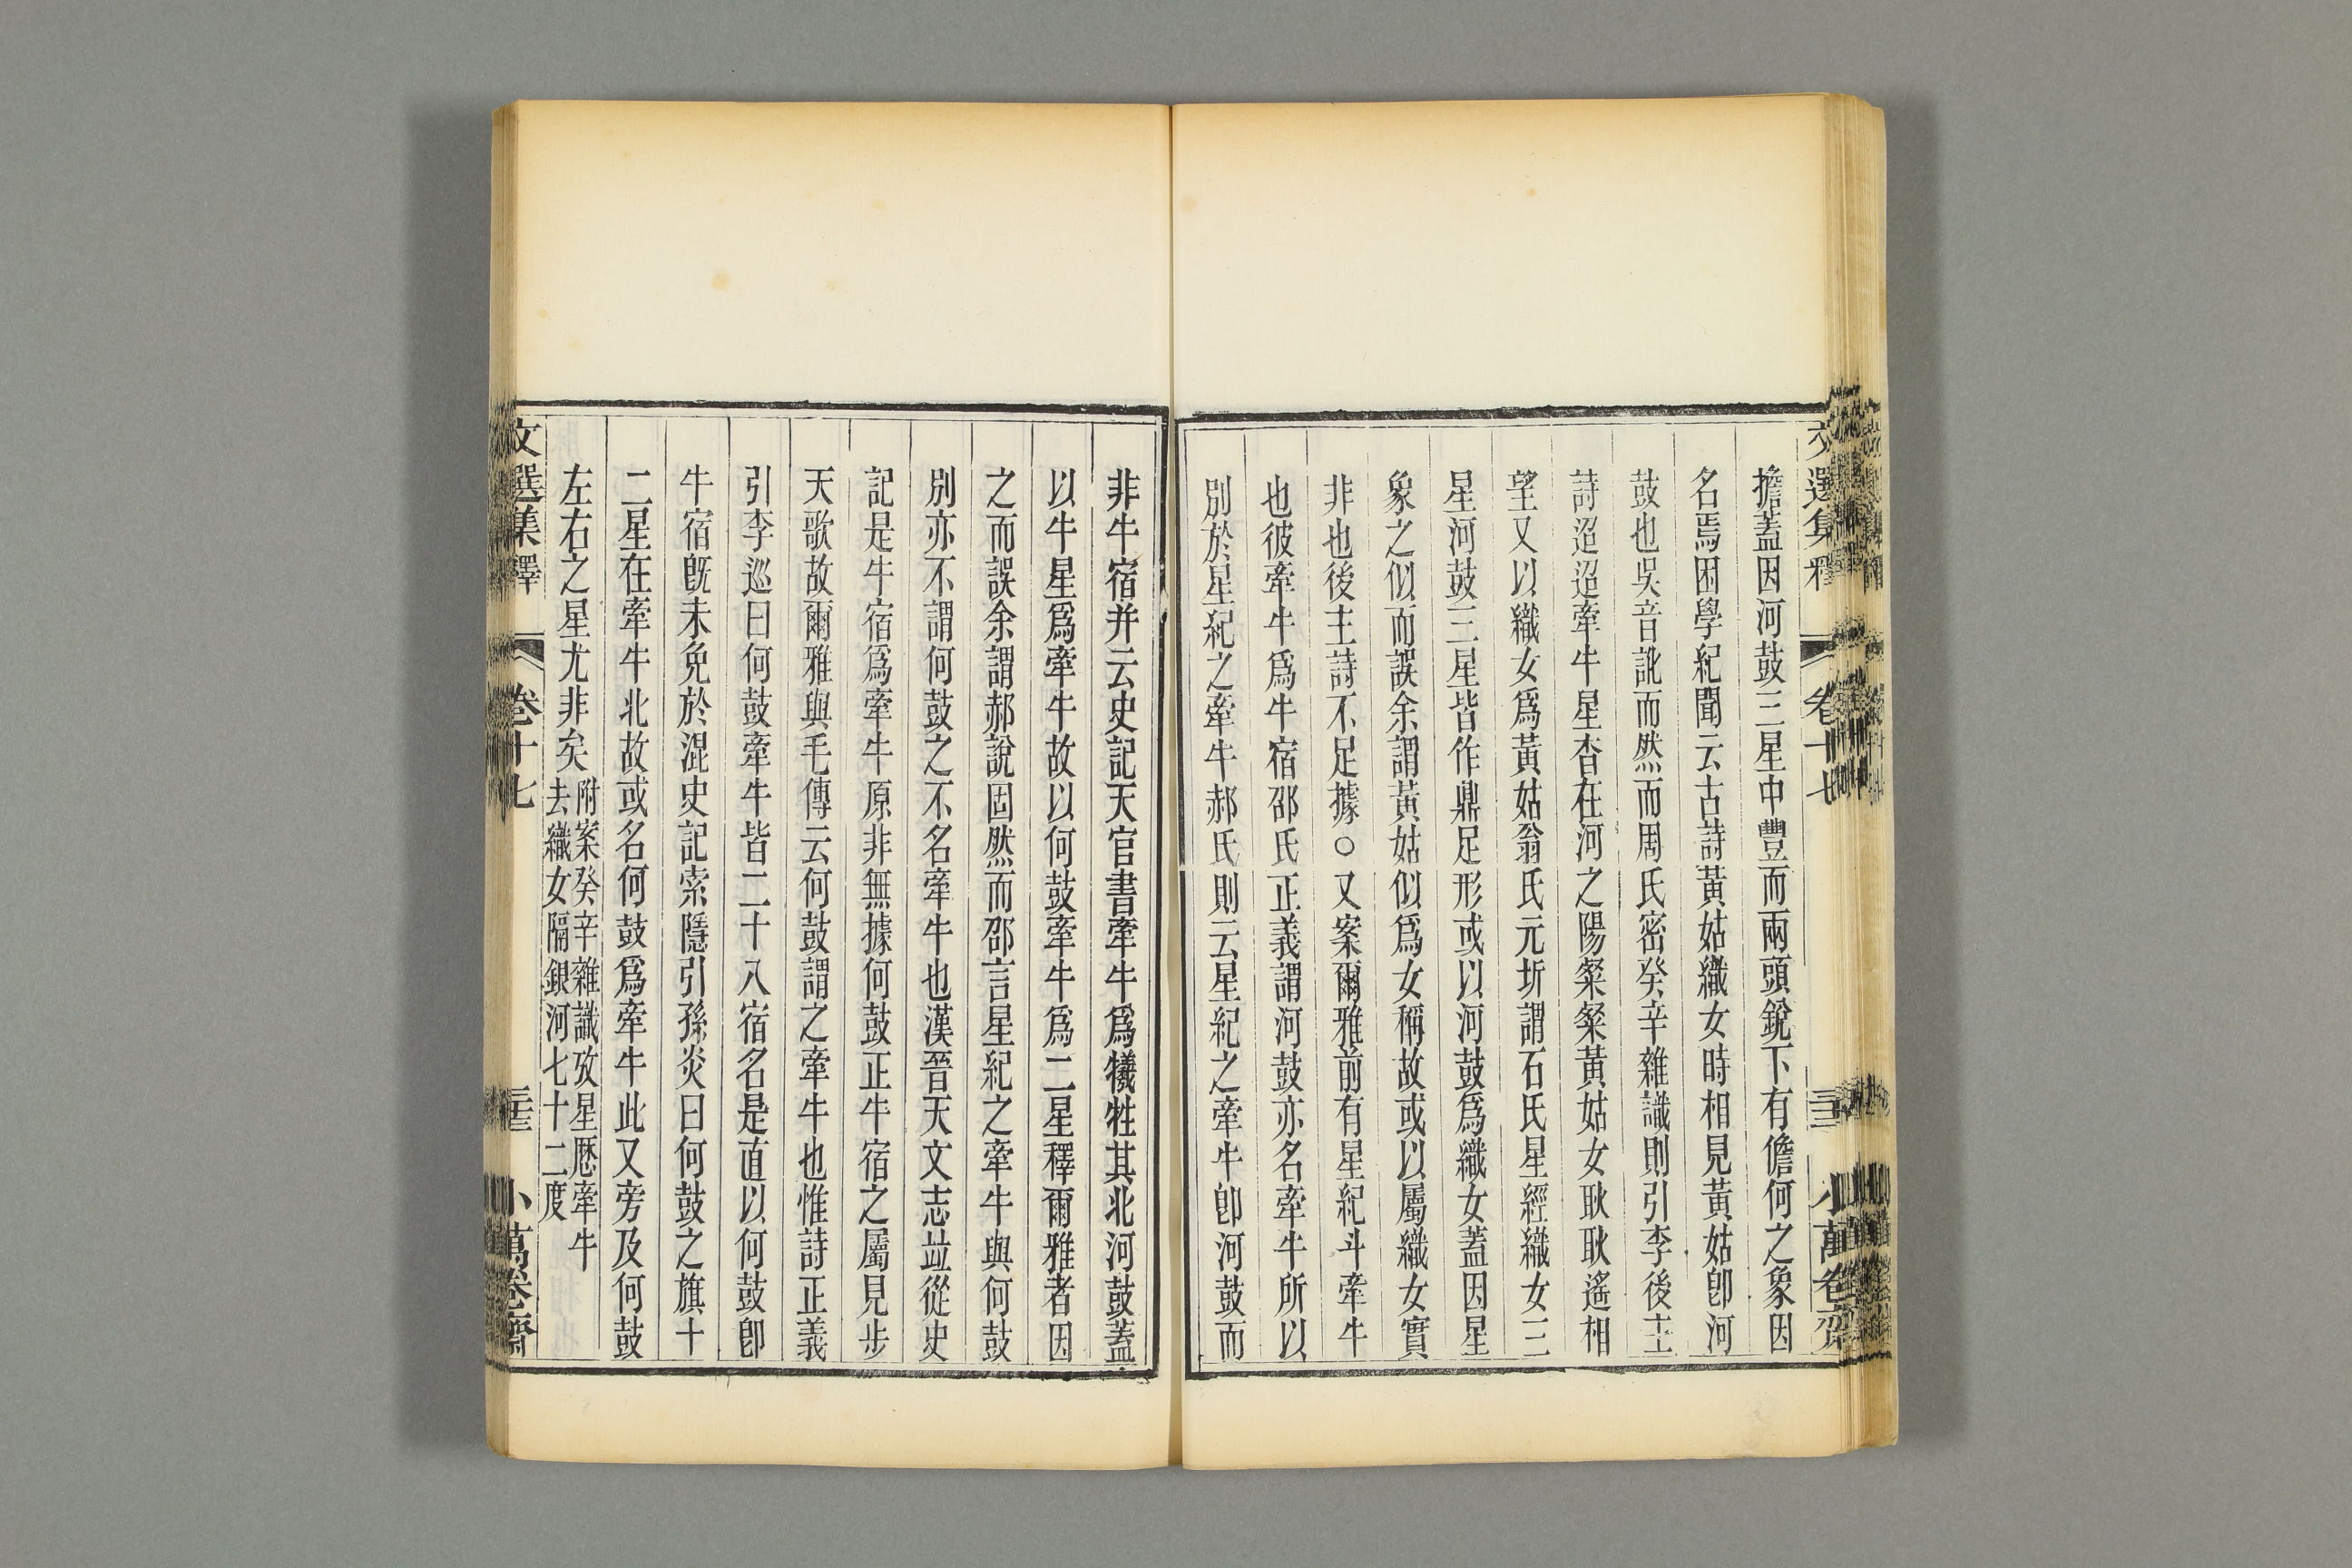 文選集釋 卷十七 小萬卷齋
擔蓋因河鼓三星中豐而兩頭銳下有儋何之象因
名焉困學紀聞云古詩黃姑織女時相見黃姑卽河
鼓也吳音訛而然而周氏密癸辛雜識則引李後主
詩迢迢牽牛星杳在河之陽粲粲黃姑女耿耿遙相
望又以織女爲黃姑翁氏元圻謂石氏星經織女三
星河鼓三星皆作鼎足形或以河鼓爲織女蓋因星
象之似而誤余謂黃姑似爲女稱故或以屬織女實
非也後主詩不足據○又案爾雅前有星紀斗牽牛
也彼牽牛爲牛宿邵氏正義謂河鼓亦名牽牛所以
別於星紀之牽牛郝氏則云星紀之牽牛卽河鼓而
非牛宿并云史記天官書牽牛爲犧牲其北河鼓蓋
以牛星爲牽牛故以何鼓牽牛爲二星釋爾雅者因
之而誤余謂郝說固然而邵言星紀之牽牛與何鼓
別亦不謂何鼓之不名牽牛也漢晉天文志竝從史
記是牛宿爲牽牛原非無據何鼓正牛宿之屬見步
天歌故爾雅與毛傳云何鼓謂之牽牛也惟詩正義
引李巡曰何鼓牽牛皆二十八宿名是直以何鼓卽
牛宿旣未免於混史記索隱引孫炎曰何鼓之旗十
二星在牽牛北故或名何鼓爲牽牛此又旁及何鼓
左右之星尤非矣
附案癸辛雜識攷星厯牽牛
去織女隔銀河七十二度
文選集釋 卷十七 小萬卷齋